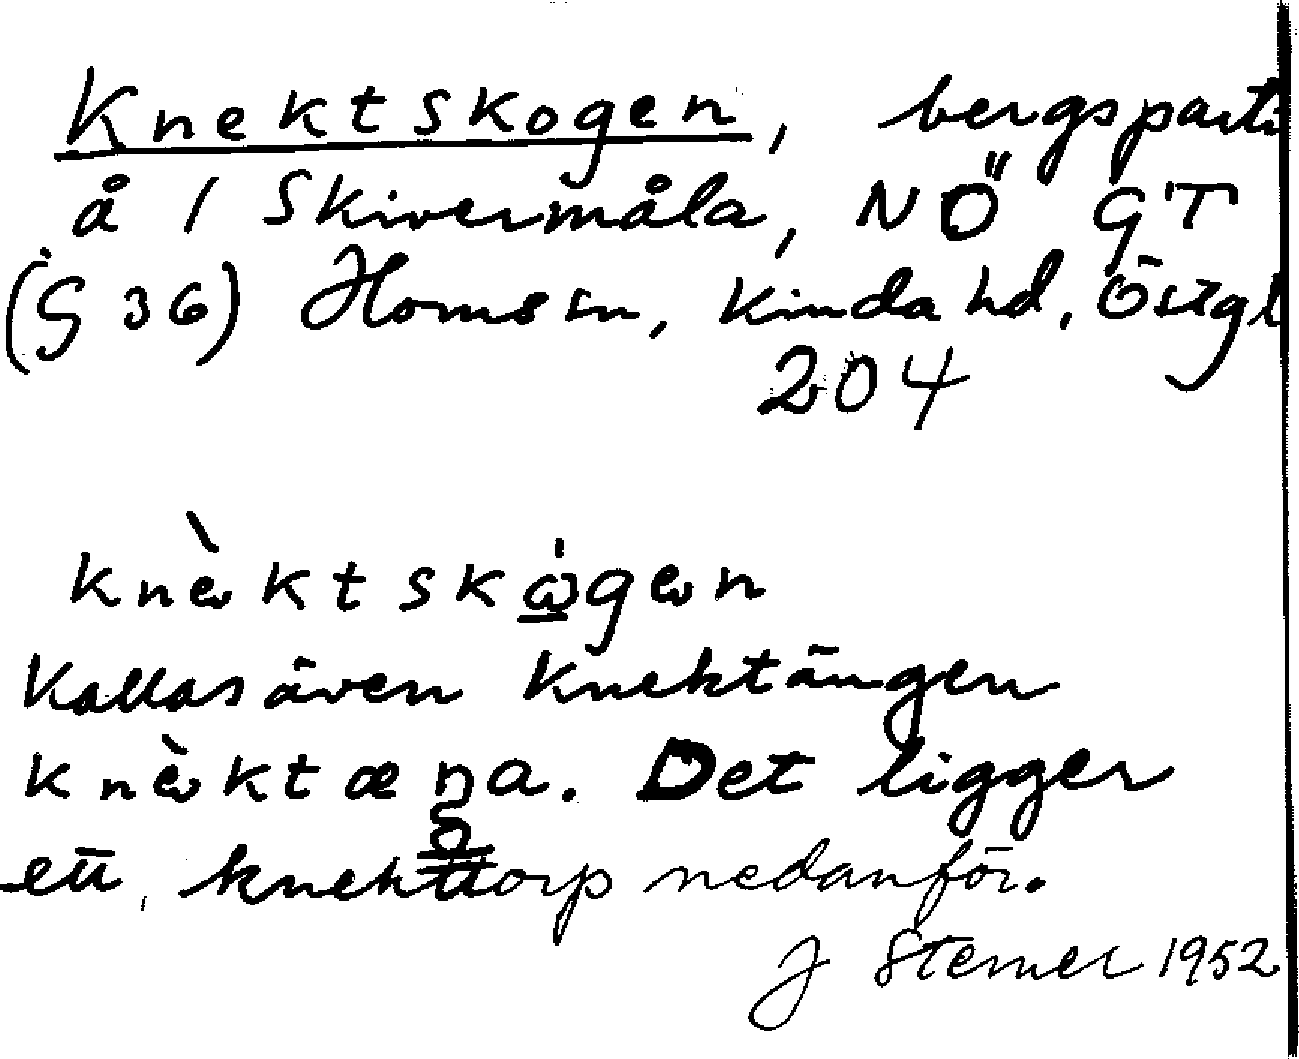 Knektskogen, bergsparti
å 1 Skivermåla, NÖ GT
(G 36) Horns sn, Kinda hd, Östgl
204
knèktskωgen
Kallas även Knektängen
knèktæŋa. Det ligger
ett knekttorp nedanför.
J Sterner 1952